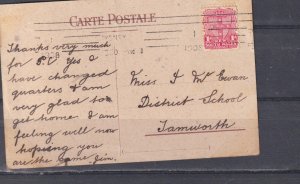 CARTE POSTALE
Thanks very much
for P.C. Yes I
have changed
quarters & am
very glad too
get home. I am
feeling well now
hopeing you
are the same Jim.
1908
Miss I Mc Ewan
District School
Tamworth